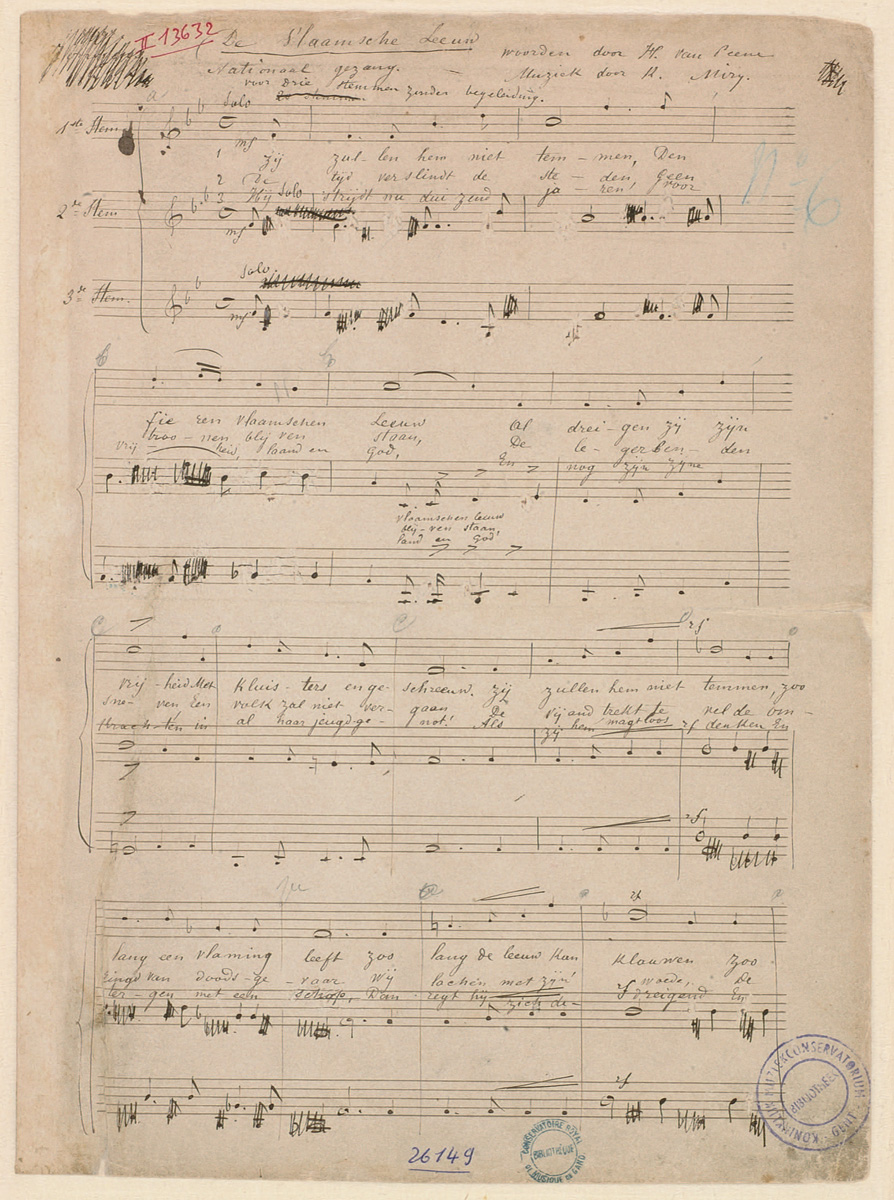 II 13632
De Vlaamsche Leeuw
woorden door H. van Peene
Nationaal gezang.
Muziek door K. Miry.
voor drie stemmen zonder begeleiding.
Solo
1ste Stem
mf
1 Zij zul-len hem niet tem-men, Den
2 De tijd verslindt de ste-den, Geen
3 Hij strijdt nu dui zend ja-ren! voor
Solo
2de Stem
mf
Solo
3de Stem.
mf
fie ren Vlaamschen Leeuw Al drei-gen zij zijn
troo-nen blij ven staan, De le-gerben-den
vrij heid, land en God, En nog zijn zijne
vlaamschen leeuw
blij-ven staan
land en God!
rf
vrij-heid Met Kluis-ters en ge-schreeuw. Zij zullen hem niet temmen, zoo
sne-ven Een volk zal niet ver-gaan De vijand trekt te vel de om-
krach-ten in al haar jeugd-ge-not! Als zij hem magtloos denken En
rf
rf
rf
lang een vlaming leeft zoo lang de leeuw kan Klauwen zoo
ringd van doods-ge-vaar Wij lachen met zijn' woede, De
ter-gen met een schop, Dan regt hij zich dreigend En
rf
rf
N° 6
KONINKLIJK MUZIEKCONSERVATORIUM
BIBLIOTHEEK
CONSERVATOIRE ROYAL DE MUSIQUE DE GAND
BIBLIOTHÈQUE
26149